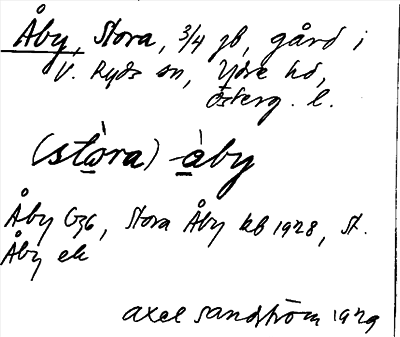 Åby, Stora, 3/4 jb, gård i
V. Ryds sn, Ydre hd,
Österg. l.
(stò̱ra) à̱by
Åby G36, Stora Åby kb 1928, St.
Åby ek
Axel Sandström 1929